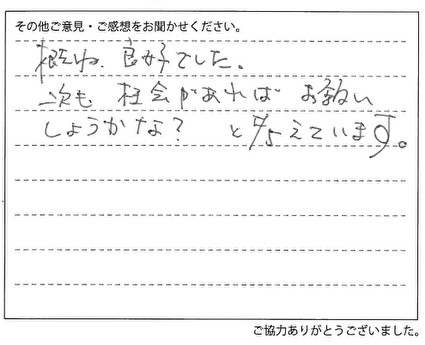 その他ご意見・ご感想をお聞かせください。
概ね、良好でした。
次も 機会があれば お願い
しようかな? と考えています。
ご協力ありがとうございました。